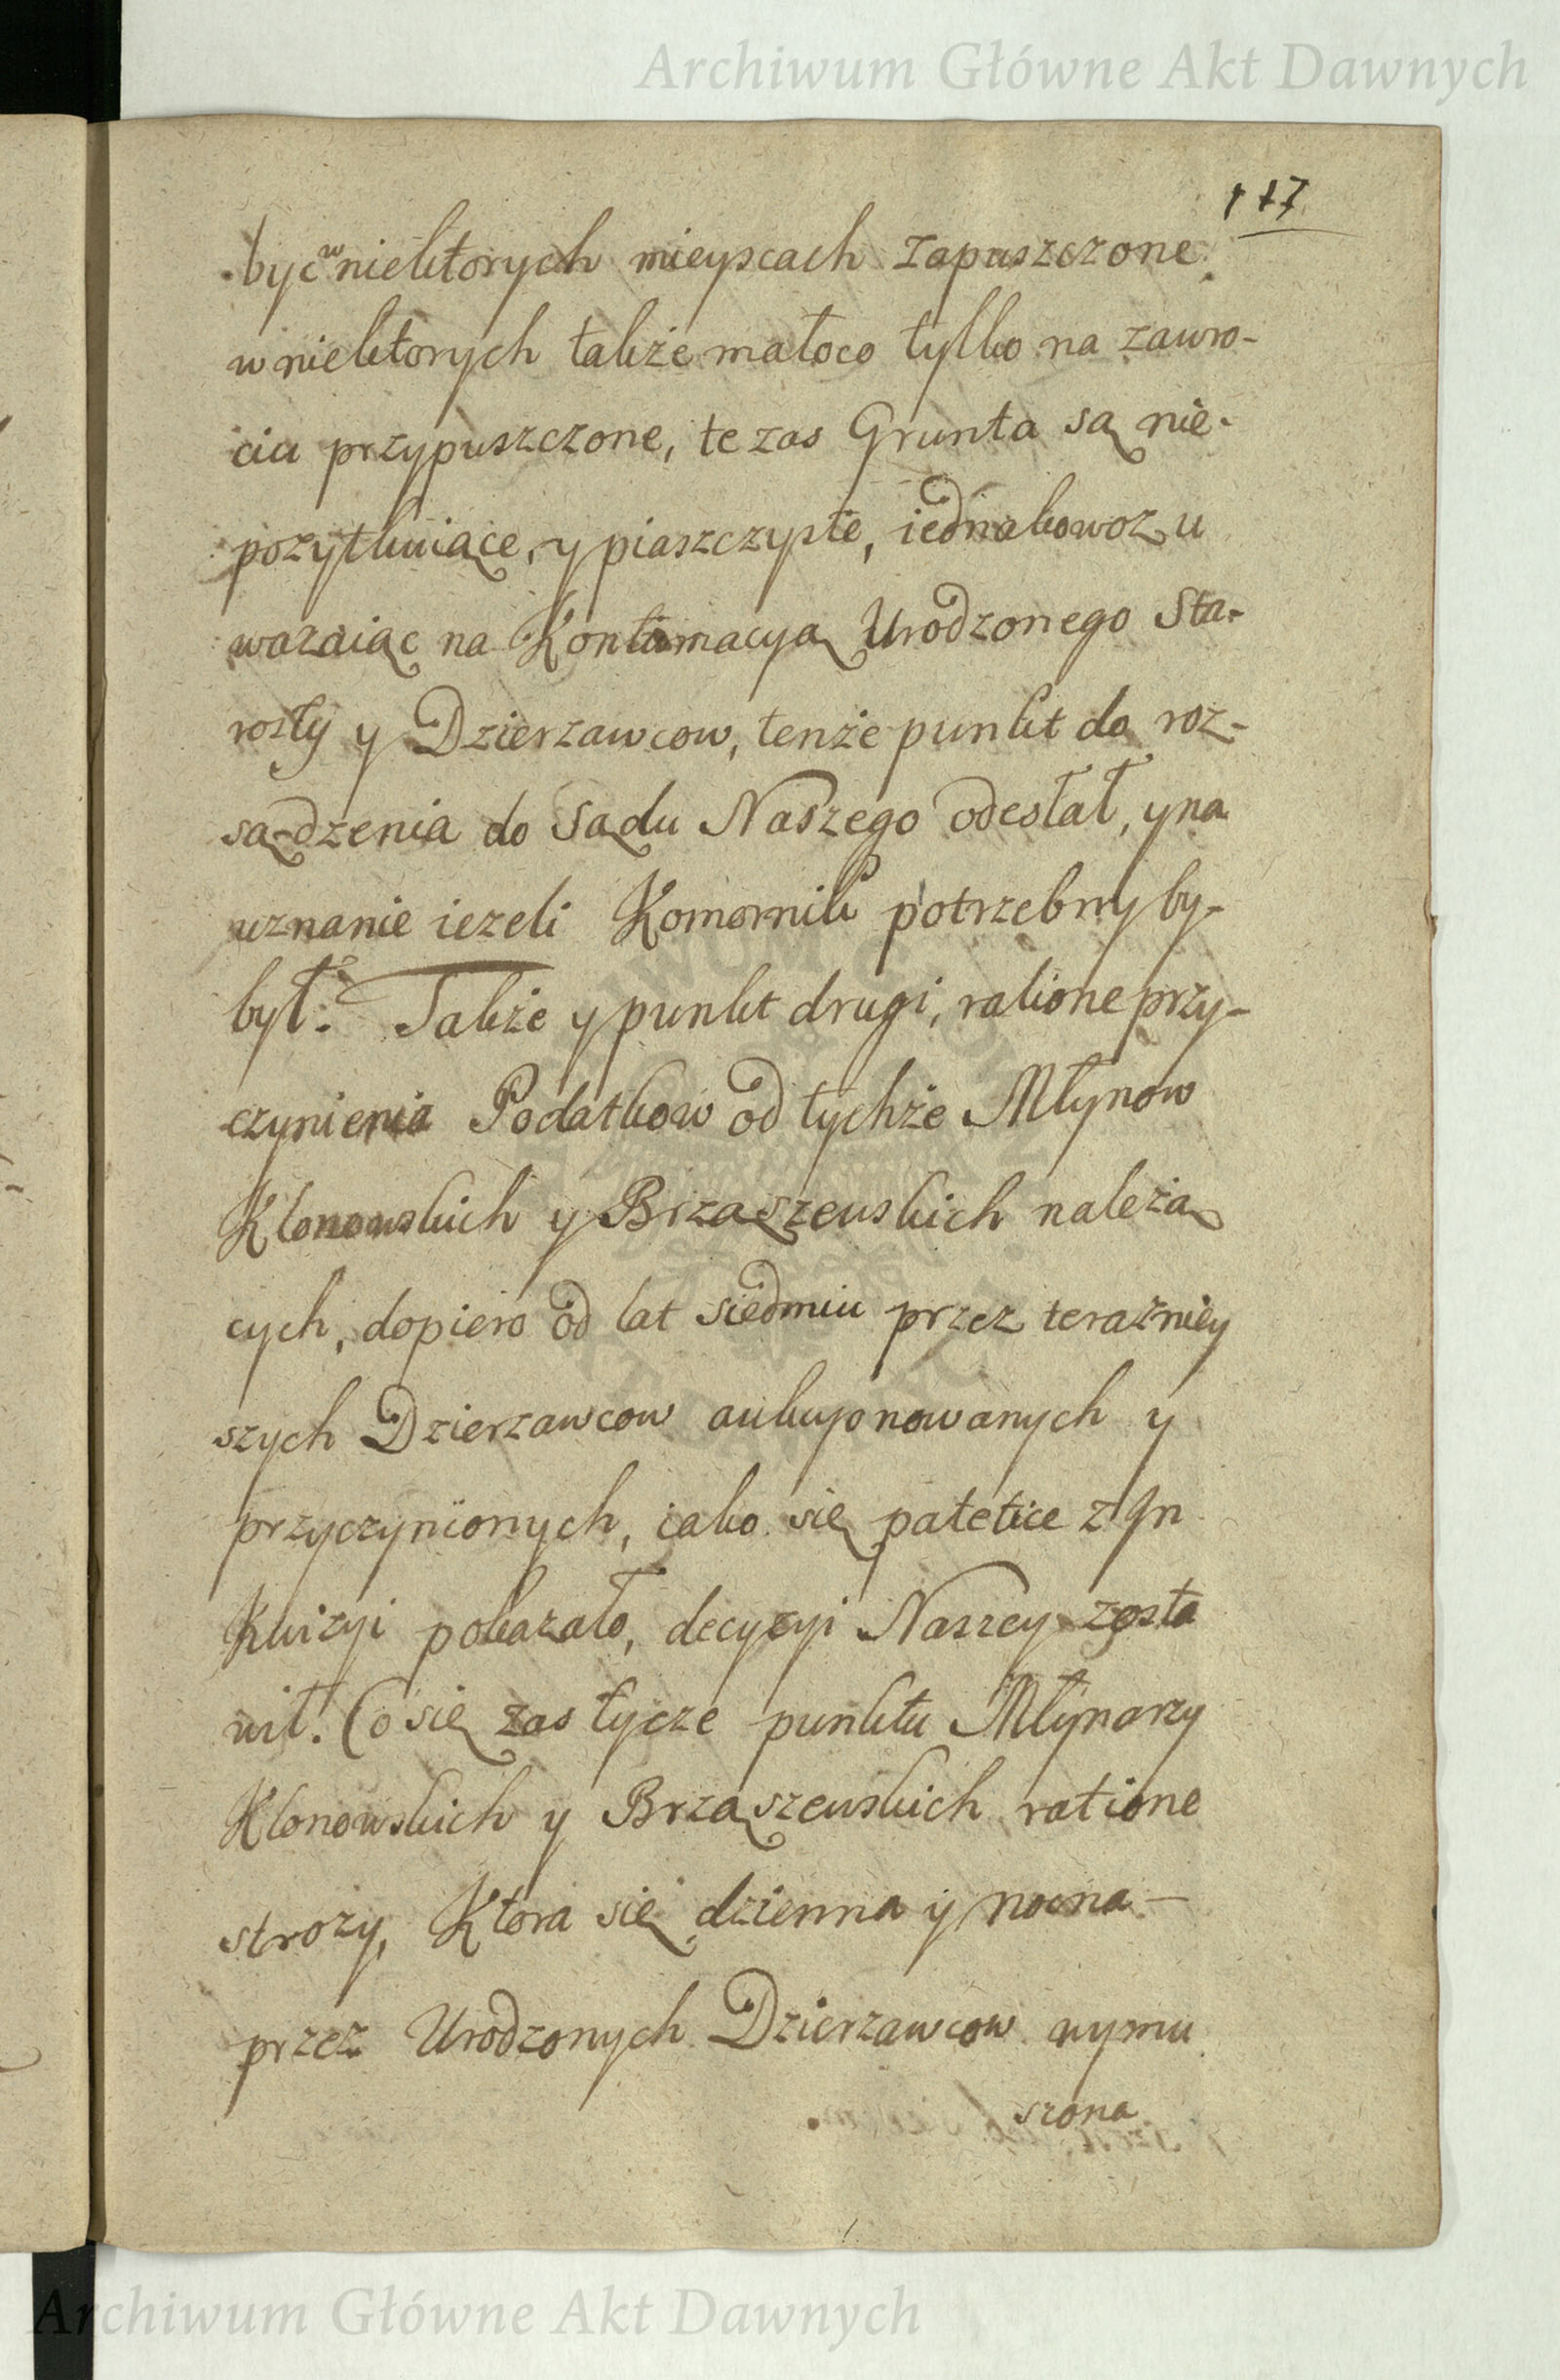 Archiwum Główne Akt Dawnych
117
być w niektorych mieyscach zapuszczone.
w niektorych także małoco tylko na zawro-
ciu przypuszczone, te zas Grunta są nie-
pozytkuiące, y piaszczyste, iednakowoz u
wazaiąc na Kontumacyą Urodzonego Sta-
rosty y Dzierzawcow, tenże punkt do roz-
sądzenia do Sądu Naszego odesłał, y na
uznanie iezeli Komornik potrzebny by-
był. Także y punkt drugi, ratione przy-
czynienia Podatkow od tychże Młynow
Klonowskich y Brząszewskich należą
cych, dopiero od lat siedmiu przez teraźniey
szych Dzierzawcow aukcyonowanych y
przyczynionych, iako się patetice z In
kwizyi pokazało, decyzyi Naszey zosta
wił. Co się zas tycze punktu Młynarzy
Klonowskich y Brząszewskich ratione
strozy, Ktora się dzienna y nocna –
przez Urodzonych Dzierzawcow wymu
szona
Archiwum Główne Akt Dawnych